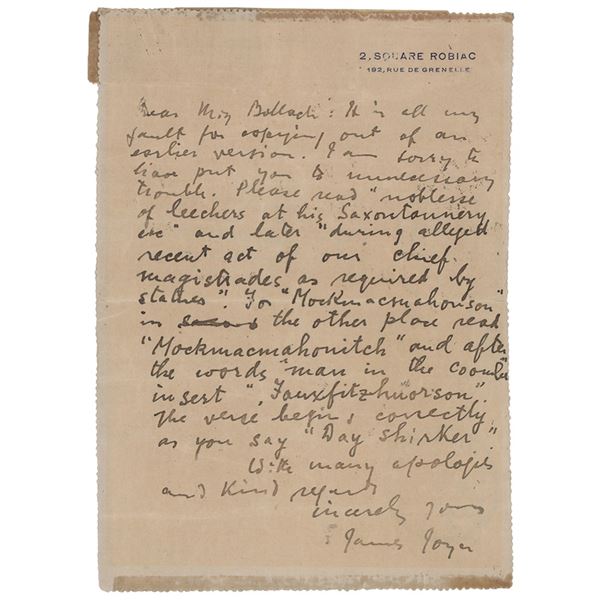 2, SQUARE ROBIAC
192, RUE DE GRENELLE
Dear Miss Bollach: It is all my
fault for copying out of an
earlier version. I am sorry to
have put you to unnecessary
trouble. Please read "noblesse
of leechers at his Saxontannery
etc" and later "during alleged
recent act of our chief
magistrades as required by
statues". For "Mockmacmahonson"
in the other place read
"Mockmacmahonitch" and after
the words "man in the coombe"
insert ", Fauxfitzhuorson".
The verse begins, correctly,
as you say "Day shirker"
With many apologies
and kind regards
sincerely yours
James Joyce